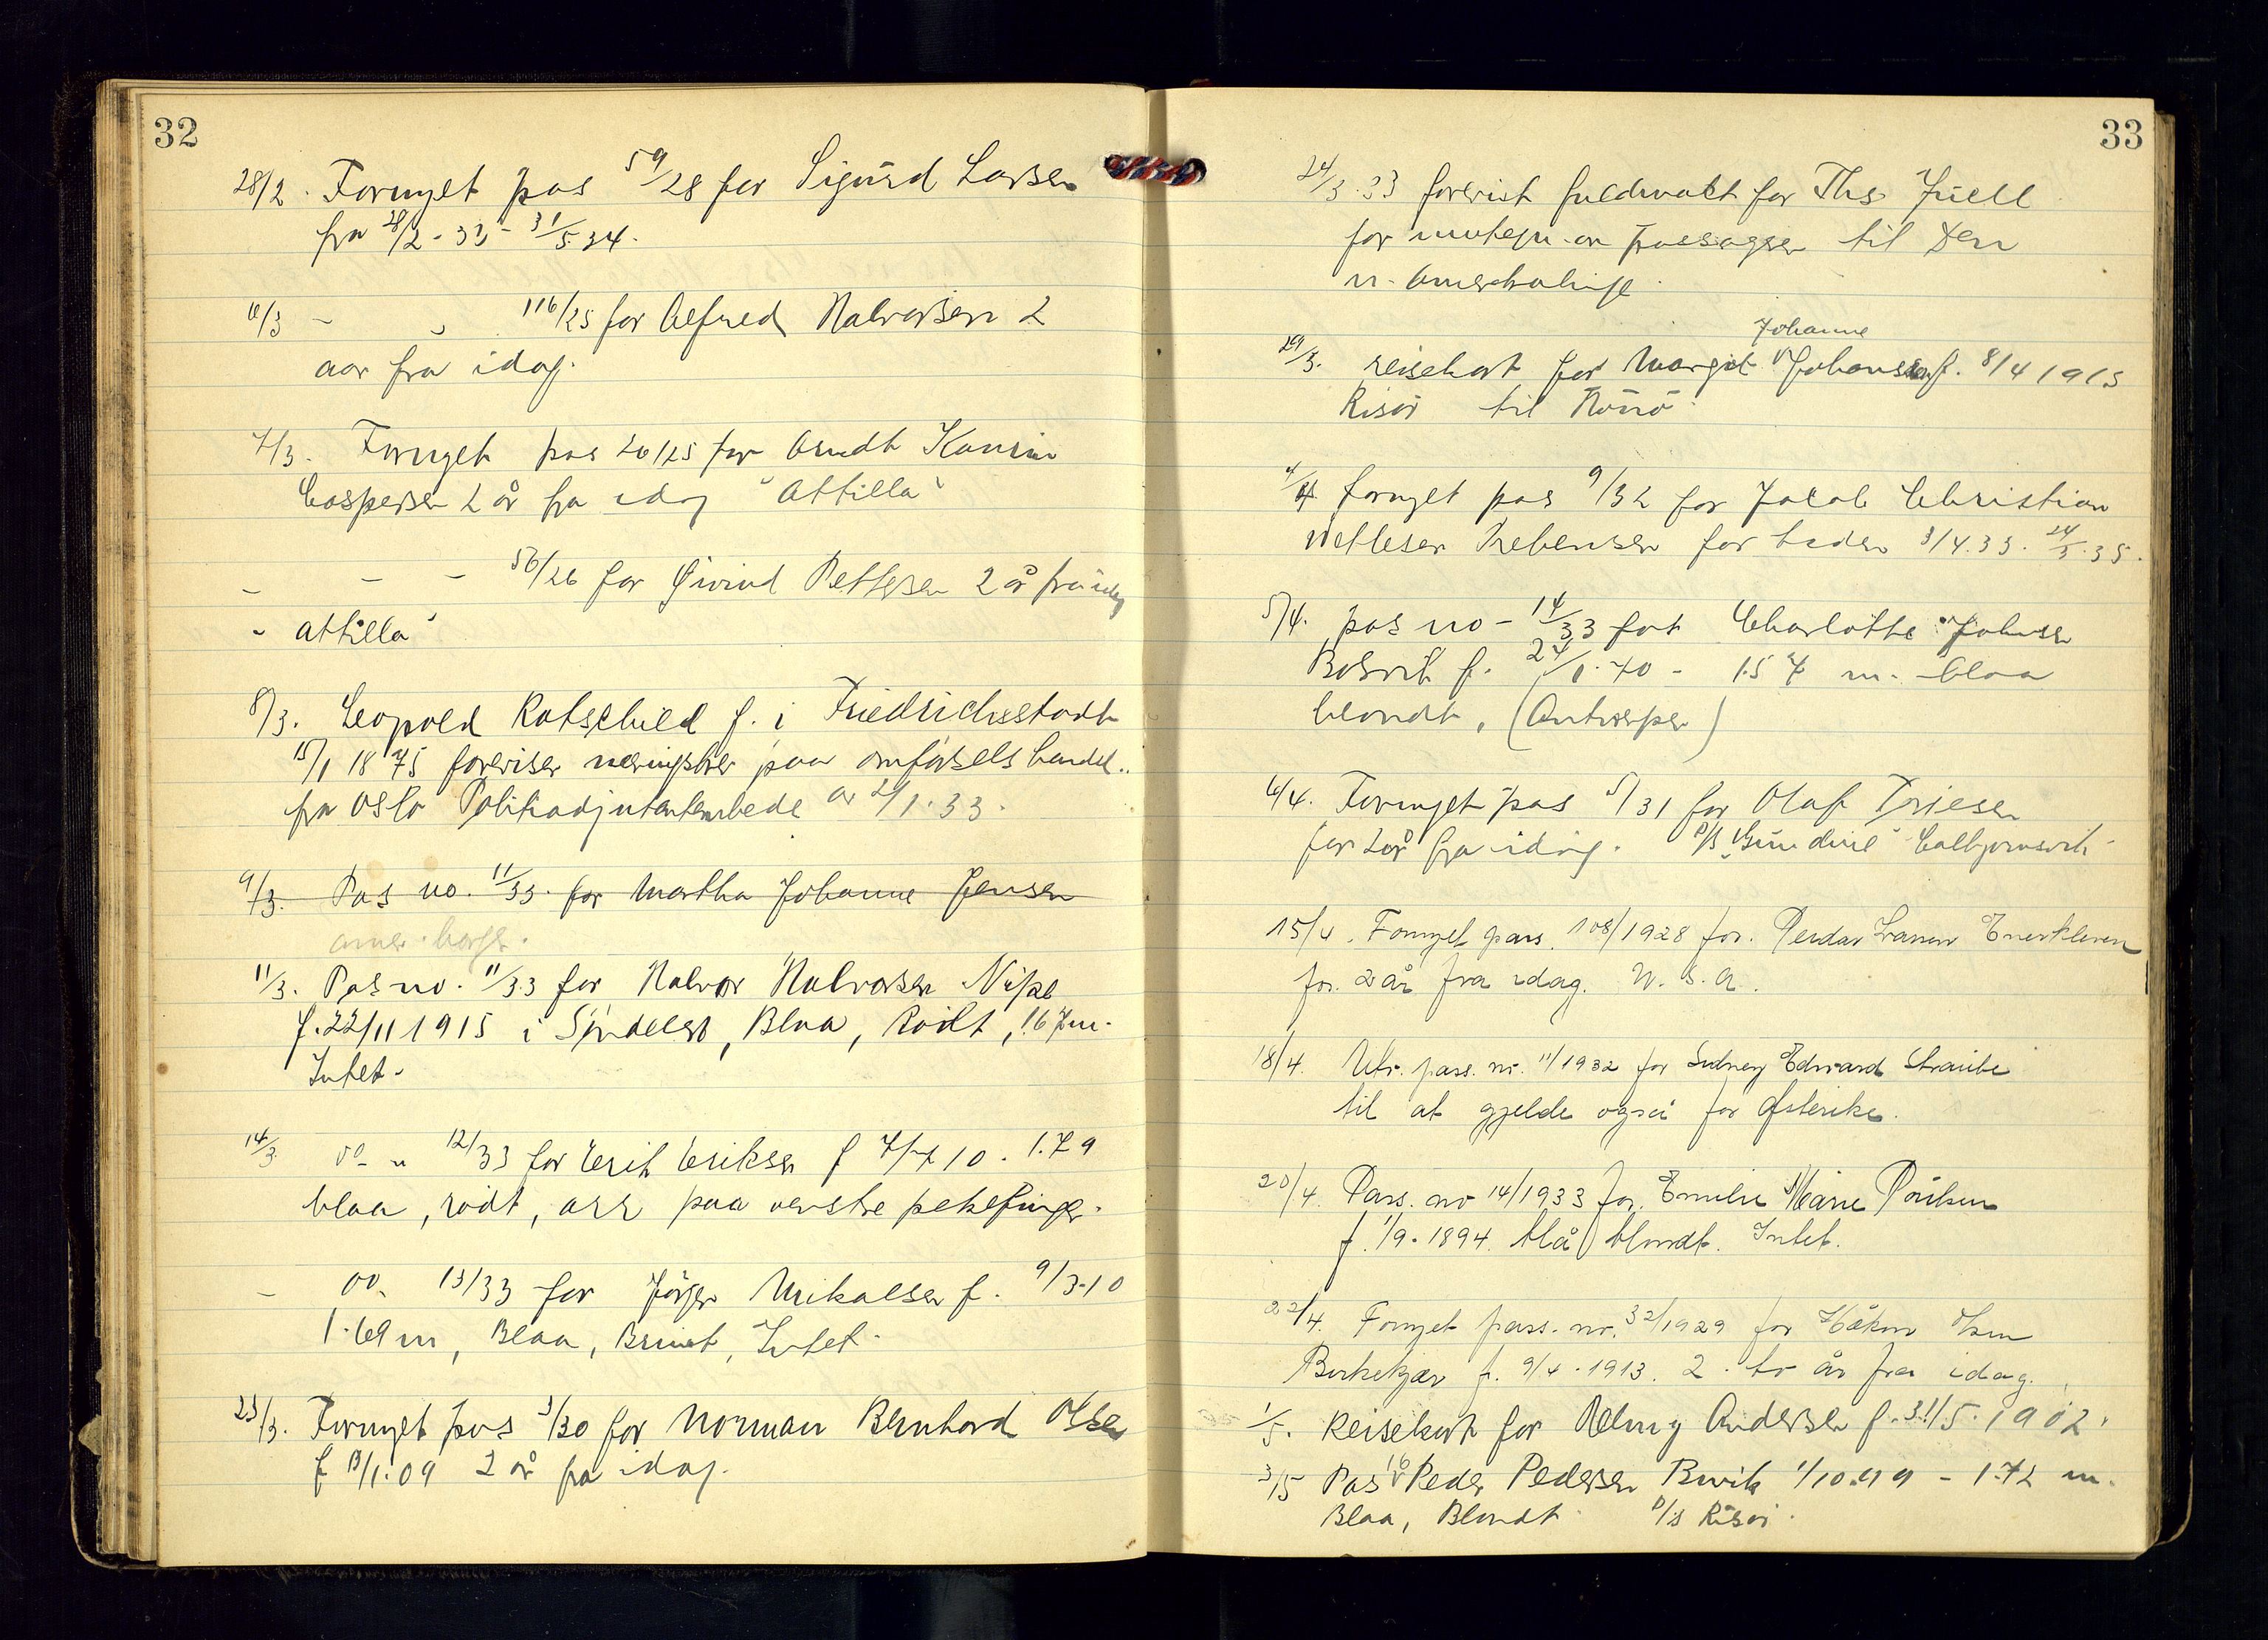 32
28/2. Fornyet pas 59/28 for Sigurd Larsen
fra 28/2-33 - 31/5.34.
6/3 - „ 116/25 for Alfred Halvorsen 2
aar fra idag.
7/3. Fornyet pas 26/25 for Arndt
Caspersen 2 år fra idag "Attilla"
- - - 56/26 for Øivind Pettersen 2 år fra idag
"Attilla"
8/3. Leopold Rotschild f. i Friedrichsstadt
15/1 1875 foreviser næringsbrev paa omførselshandel..
fra Oslo Politiadjutantembede av 2/1.33.
9/3. Pas no. 11/33. for Martha Johanne Jensen
amer. borger.
11/3. Pas no. 11/33 for Halvor Halvorsen Nipe
f. 22/11 1915 i Søndeled, Blaa, Rødt, 167 m.
Intet.
14/3 do- " 12/33 for Erik Eriksen f 7/7 10. 1.79
blaa, rødt, arr paa venstre pekefinger.
- do. 13/33 for Jørgen Mikalsen f. 9/3.10
1.69 m, Blaa, Brunt, Intet.
23/3. Fornyet pas 3/30 for Norman Bernhard Olsen
f 13/1.09 2 år fra idag.
33
24/3.33 forevist fuldmakt for Ths. Juell
for av passagerer til Den
n. Amerikalinje.
Johanne
29/3. reisekort for Margit Johansen f. 8/4 1915
Risør til
4/4 fornyet pas 9/32 for Jacob Christian
Wetlesen Prebensen for tiden 3/4.33. 24/3.35.
5/4. pas no - 14/33 for Charlotte Johnsen
f. 24/1.70 - 157 m. blaa
blondt, (Antwerpen)
6/4. Fornyet pas 5/31 for Olaf
for 2 år fra idag. D/S "Gundine"
15/4. Fornyet pass. 108/1928 for. Peidar
for. 2 år fra idag. U.S.A.
18/4. Utv. pass. nr. 11/1932 for Sidney Edward Straube
til at gjelde også for Østerike.
20/4. Pass. no 14/1933 for. Emilie Marie
f. 1/9.1894. blå blondt. Intet.
22/4. Fornyet pass. nr. 32/1929 for Håkon Olsen
Birkekjær f. 9/4.1913. 2. to år fra idag.
1/5. Reisekort for Andersen f. 31/5.1902.
3/5 Pas 16 Peder Pedersen 1/10.99 - 1.72 m.
Blaa, Blondt D/S Risør.